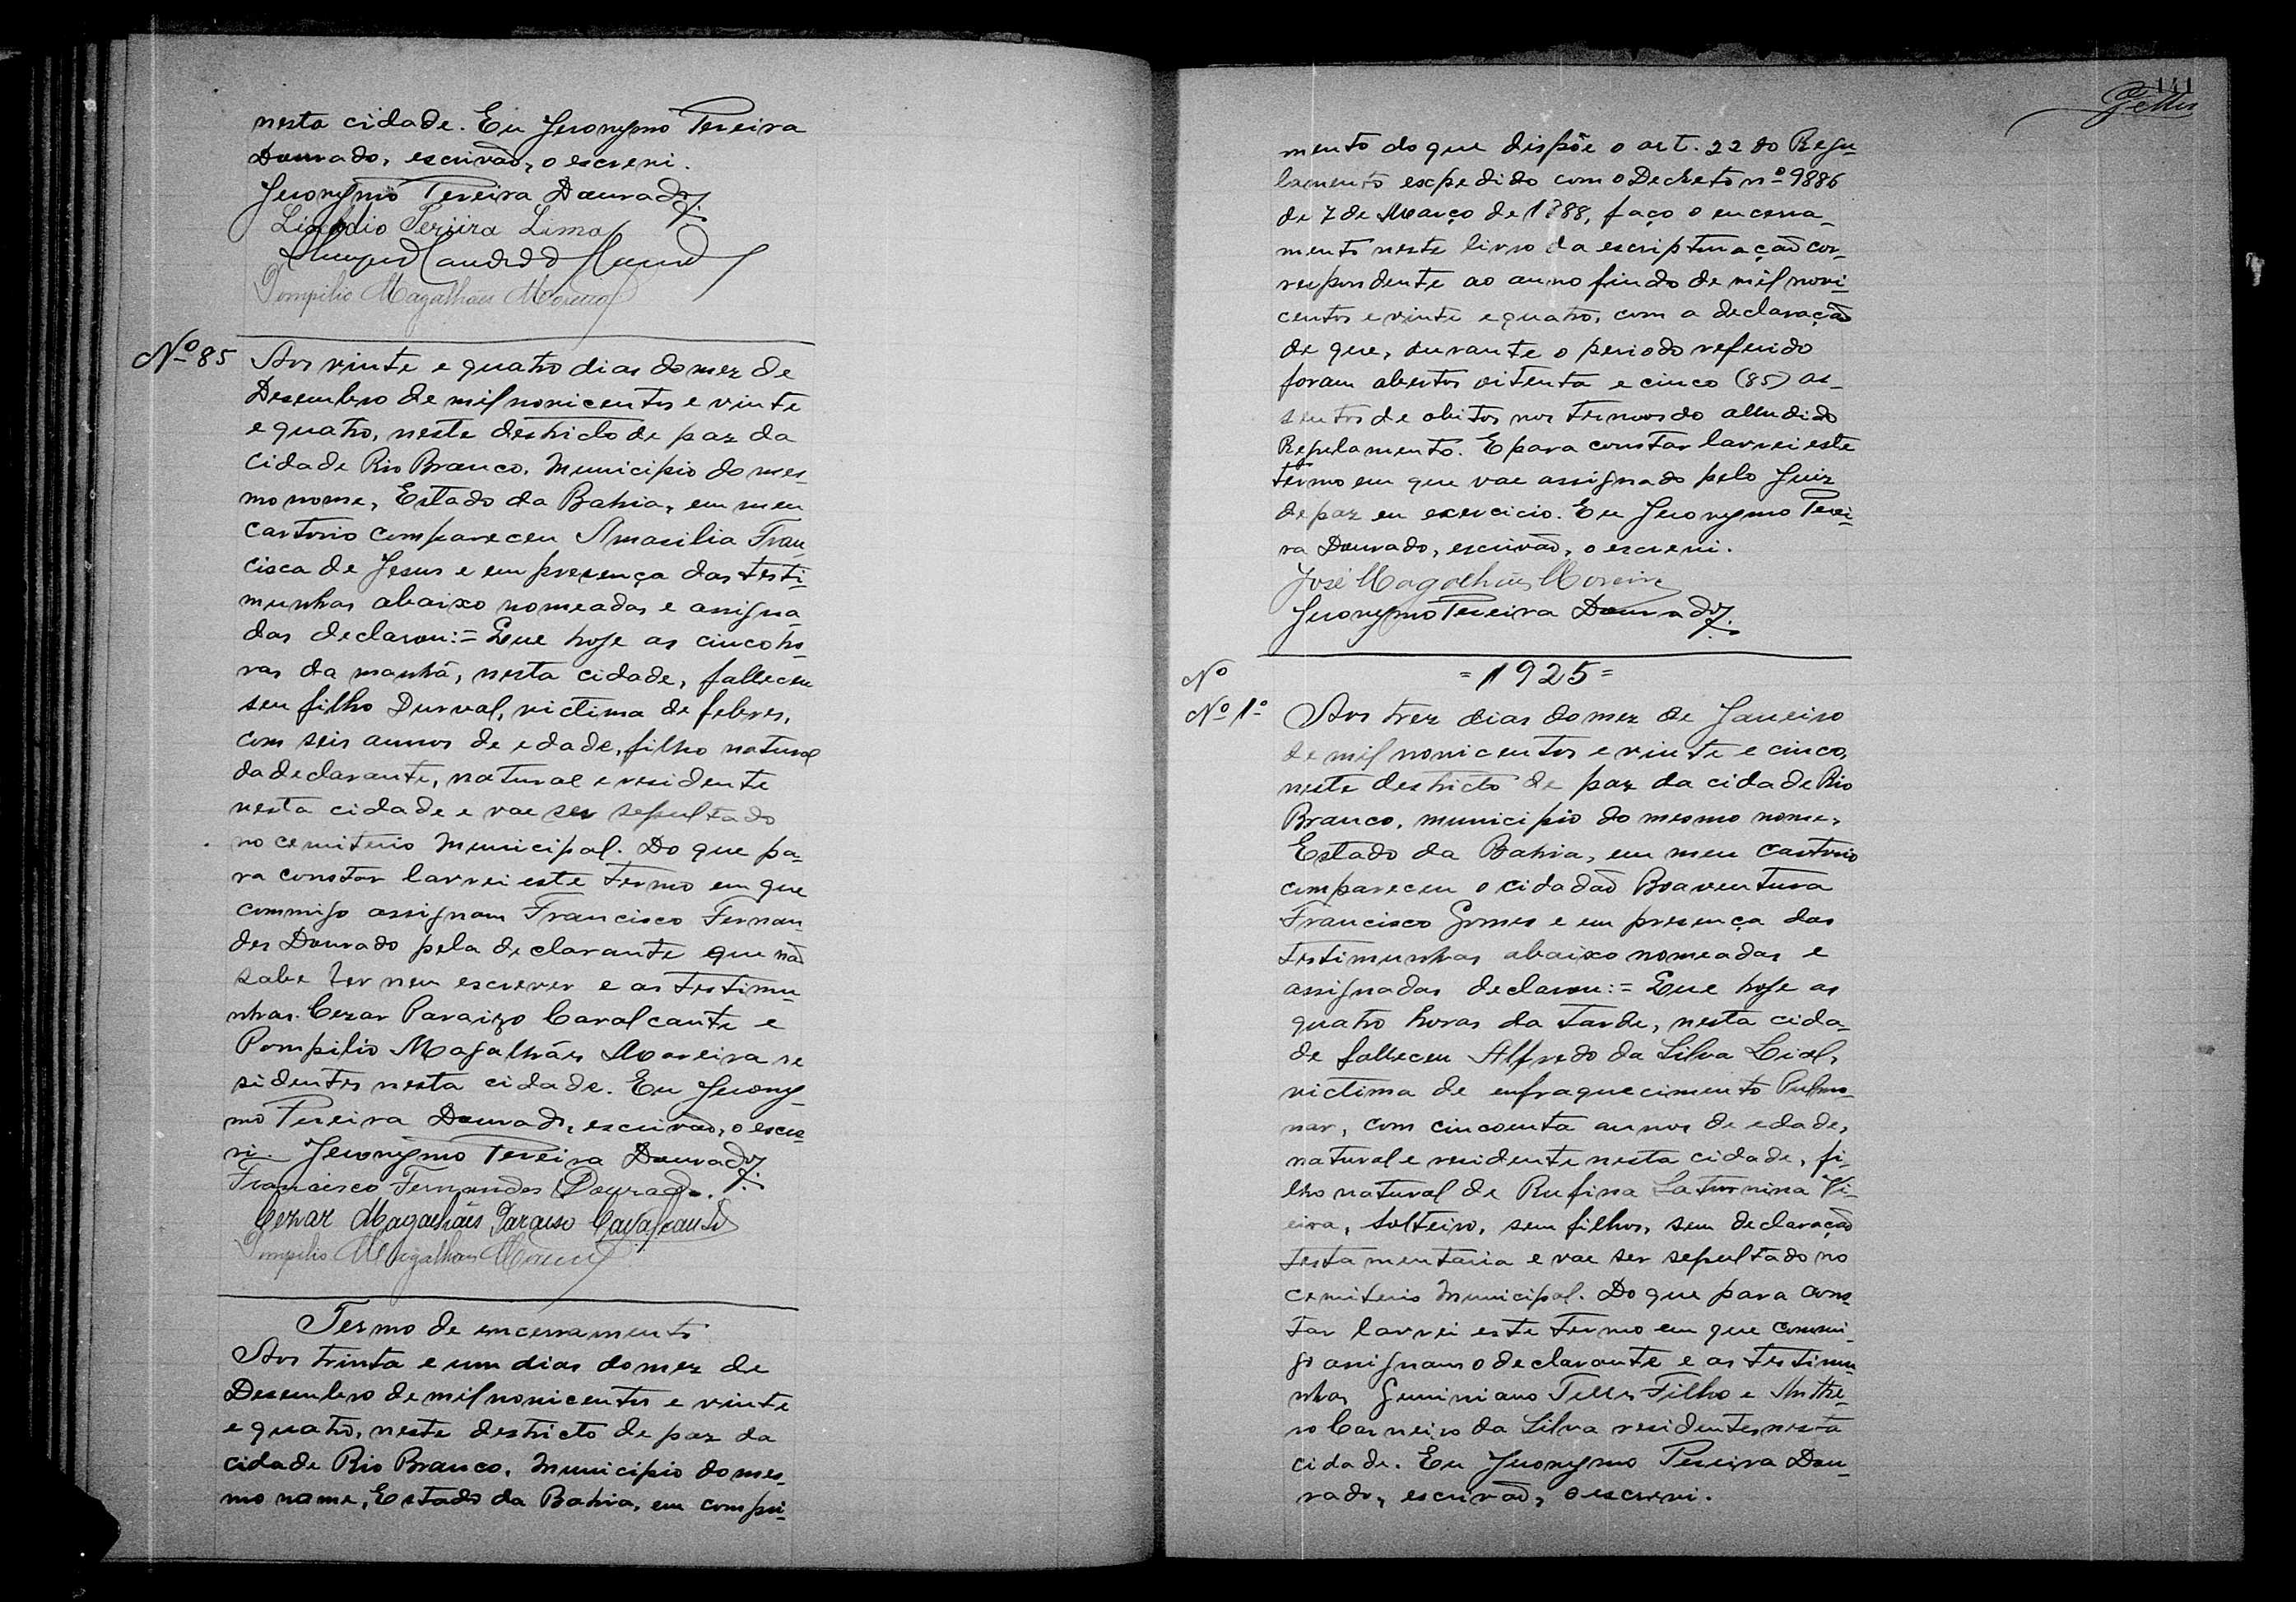 nesta cidade. Eu Jeronymo Pereira
Dourado, escrivão, o escrevi.
Jeronymo Pereira Dourado
Pereira Lima
Pompilio Magalhães Moreira
Nº 85
Aos vinte e quatro dias do mez de
Desembro de mil novicentos e vinte
e quatro, neste destricto de paz da
Cidade Rio Branco, Municipio do mes-
mo nome, Estado da Bahia, em meu
Cartorio compareceu Amasilia Fran-
cisca de Jesus e em presença das testi-
munhas abaixo nomeadas e assigna-
das declarou:= Que hoje as cinco ho-
ras da manhã, nesta cidade, falleceu
seu filho Durval, victima de febres,
com seis annos de edade, filho natural
da declarante, natural e residente
nesta cidade e vae ser sepultado
no cemiterio Municipal. Do que pa-
ra constar lavrei este termo em que
commigo assignam Francisco Fernan-
des Dourado pela declarante que não
sabe ler nem escrever e as testimu-
nhas Cezar Paraizo Cavalcante e
Pompilio Magalhães Moreira re
sidentes nesta cidade. Eu Jerony-
mo Pereira Dourado, escrivão, o escre-
vi. Jeronymo Pereira Dourado
Francisco Fernandes Dourado.
Cezar Magalhães Paraiso Cavalcanti
Pompilio Magalhães Moreira
Termo de encerramento
Aos trinta e um dias do mez de
Desembro de mil novicentos e vinte
e quatro, neste destricto de paz da
cidade Rio Branco, Municipio do mes-
mo nome, Estado da Bahia, em compri-
141
mento do que dispõe o art. 22 do Regu-
lamento expedido com o Decreto nº 9886
de 7 de Março de 1888, faço o encerra-
mento neste livro da escripturação cor-
respondente ao anno findo de mil novi-
centos e vinte e quatro, com a declaração
de que, durante o periodo referido
foram abertos oitenta e cinco (85) as-
sentos de obitos nos termos do alludido
Regulamento. E para constar lavrei este
termo em que vae assignado pelo Juiz
de paz em exercicio. Eu Jeronymo Perei-
ra Dourado, escrivão, o escrevi.
José Magalhães Moreira
Jeronymo Pereira Dourado
Nº
=1925=
Nº 1º
Aos trez dias do mez de Janeiro
de mil novicentos e vinte e cinco,
neste destricto de paz da cidade Rio
Branco, municipio do mesmo nome,
Estado da Bahia, em meu Cartorio
compareceu o cidadão Boaventura
Francisco Gomes e em presença das
testimunhas abaixo nomeadas e
assignadas declarou:= Que hoje as
quatro horas da tarde, nesta cida-
de falleceu Alfredo da Silva Lial,
victima de enfraquecimento Pulmo-
nar, com cincoenta annos de edade,
natural e residente nesta cidade, fi-
lho natural de Rufina Saturnina Vi-
eira, solteiro, sem filhos, sem declaração
testamentaria e vae ser sepultado no
cemiterio Municipal. Do que para cons-
tar lavrei este termo em que commi-
go assignam o declarante e as testimu-
nhas Geminiano Telles Filho e Anthe-
ro Carneiro da Silva residentes nesta
cidade. Eu Jeronymo Pereira Dou-
rado, escrivão, o escrevi.